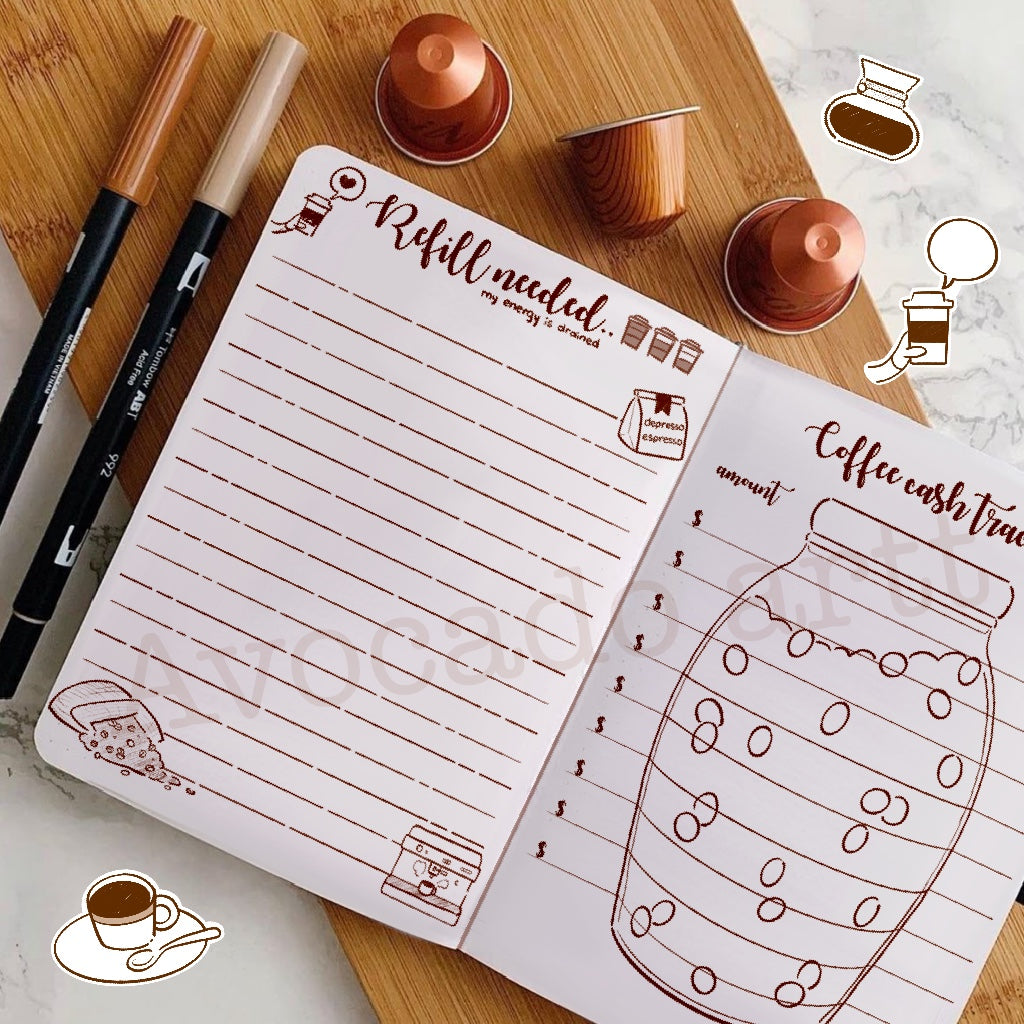 Refill needed..
my energy is drained
depresso
espresso
Coffee cash trac
amount
$
$
$
$
$
$
$
$
$
Tombow ABT
Acid Free
992
MADE IN VIETNAM
Avocado artt